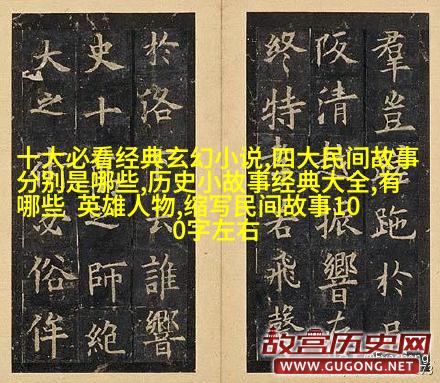 十大必看经典玄幻小说,四大民间故事
分别是哪些,历史小故事经典大全,有
哪些 英雄人物,缩写民间故事10
0字左右
羣豈跎於
阪清振響
終特飛聲
於洛誰響
史十之師絕
大之俗侔
故宫历史网
WWW.GUGONG.NET
73